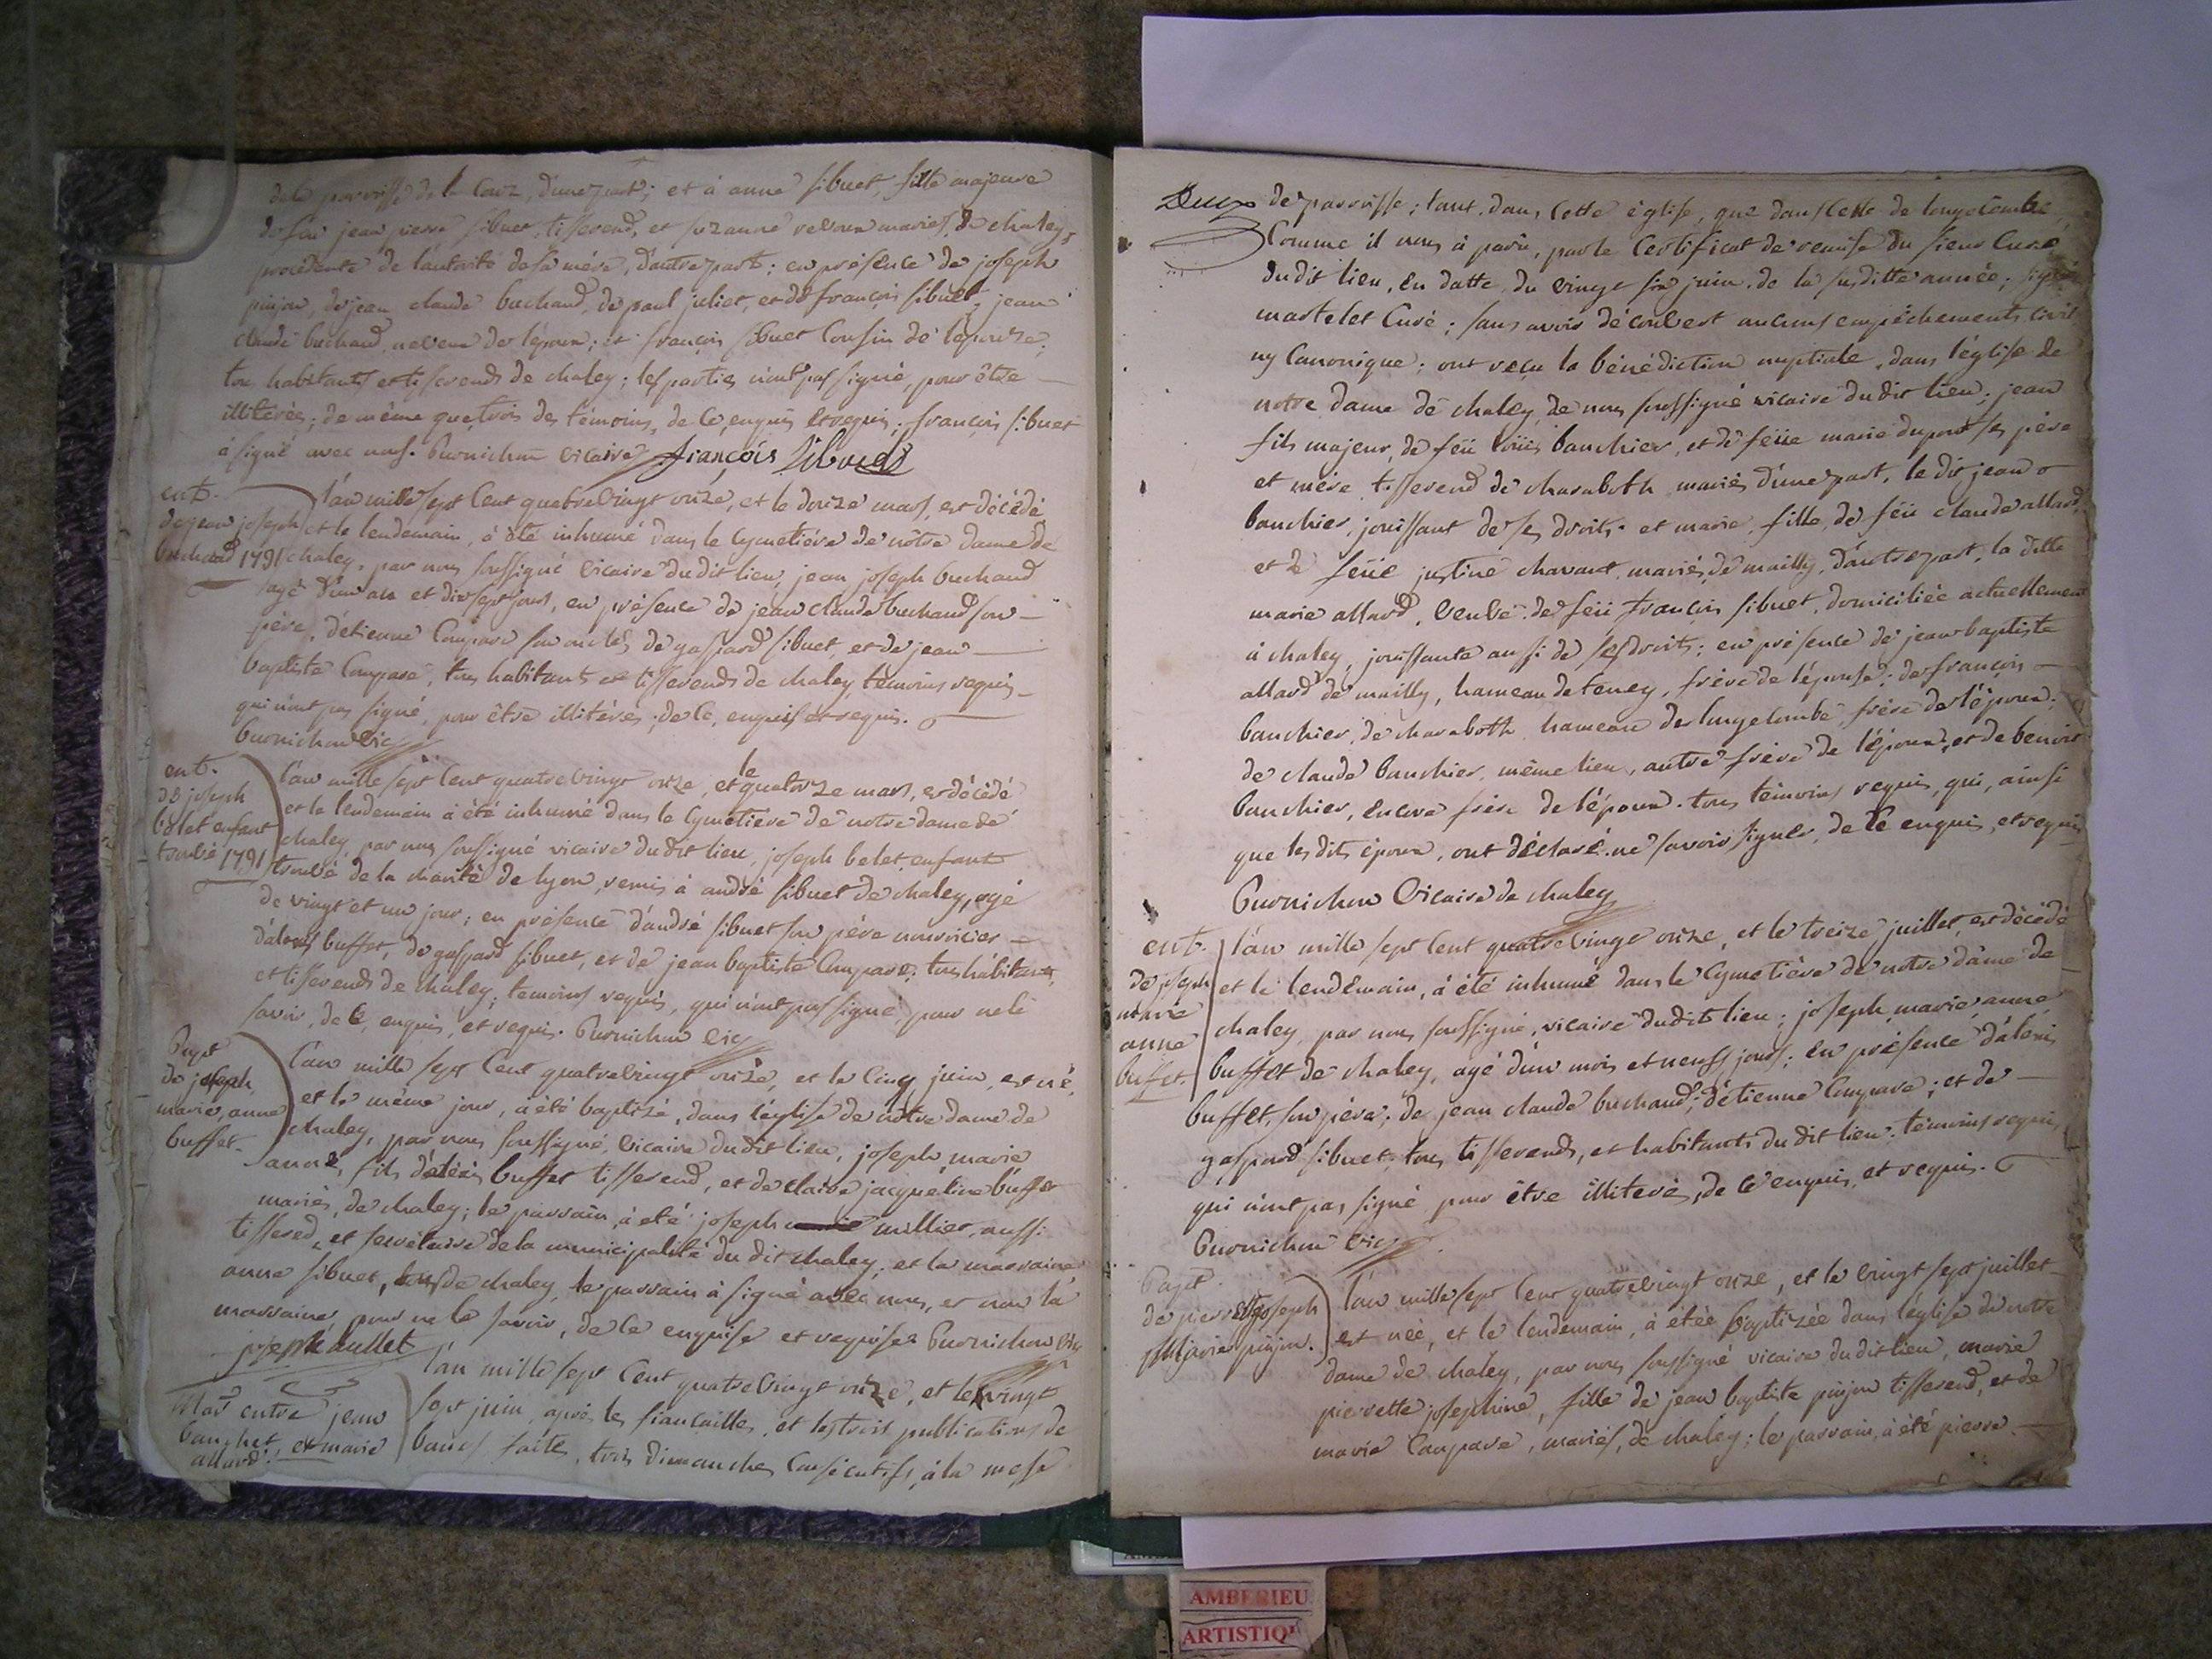 de la parroisse de la Couz, d'une part; et à anne sibuet, fille majeure
de feu jean pierre sibuet, tisserend, et suzanne velvoux mariés, de chaley,
procédente de l'autorité de sa mére, d'autre part; en présence de joseph
pinjon, de jean claude buchand, de paul juliet, et de françois sibuet; jean
claude buchand, neveu de l'époux; et françois sibuet Cousin de l'épouse;
tous habitants et tisserends de chaley; les parties n'ont pas signé, pour être
illiterées; de même que trois des témoins, de Ce, enquis et requis; françois sibuet
à signé avec nous. Burnichon vicaire françois Sibuet
ent.
de jean joseph
buchand 1791
l'an mille sept Cent quatrevingt onze, et le douze mars, est décédé
et le lendemain, à été inhumé dans le Cymetière de nôtre dame de
chaley, par nous soussigné vicaire du dit lieu, jean joseph buchand
agé d'un an et dix sept jours, en présence de jean claude buchand son
père, d'étienne Compare son oncle, de gaspard sibuet, et de jean
baptiste Compare, tous habitants et tisserends de chaley, témoins requis
qui n'ont pas signé, pour être illitérés; de Ce, enquis et requis.
burnichon vic
ent.
de joseph
belet enfant
trouvé 1791
l'an mille sept Cent quatrevingt onze, et le quatorze mars, est décédé
et le lendemain à été inhumé dans le Cymetière de notre dame de
chaley, par nous soussigné vicaire du dit lieu, joseph belet, enfant
trouvé de la charité de lyon, remis à andré sibuet de chaley, agé
de vingt et un jour; en présence d'andré sibuet son père nourricier
d'alexis buffet, de gaspard sibuet, et de jean baptiste Compare, tous habitants
et tisserends de chaley; temoins requis, qui n'ont pas signé, pour ne le
savoir, de Ce, enquis, et requis. Burnichon vic
Bapt
de joseph
marie, anne
buffet.
l'an mille sept Cent quatrevingt onze, et le Cinq juin, est né,
et le même jour, à été baptisé, dans l'église de notre dame de
chaley, par nous soussigné, vicaire du dit lieu, joseph, marie
anne, fils d'alexis buffet tisserend, et de claire jacqueline buffet
mariés, de chaley; le parrain, à eté joseph millier, aussi
tisserend, et secrétaire de la municipalité du dit chaley; et la marraine
anne sibuet, tous de chaley, le parrain à signé avec nous, et non la
marraine, pour ne le savoir, de Ce enquise et requise. Burnichon vic
joseph mullet
Mar entre jean
bauchet, et marie
allard.
l'an mille sept Cent quatrevingt onze, et le vingt
sept juin, après les fiancailles, et les trois publications de
bancs faites, trois dimanches Consécutifs, à la messe
Deux
de parroisse; tant dans Cette église, que dans Celle de longeCombe,
Comme il nous à parû, par le Certificat de remise du sieur Curé
du dit lieu, en datte du vingt six juin, de la susditte année; signé
martelet Curé; sans avoir découvert aucuns empêchements civil
ny Canonique; ont reçu la bénédiction nuptiale, dans l'église de
notre dame de chaley, de nous soussigné vicaire du dit lieu; jean
fils majeur, de feü loüis bauchier, et de feüe marie dupont ses père
et mère, tisserend de charaboth, mariés d'une part, le dit jean
bauchier, jouissant de ses droits; et marie, fille, de feü claude allard,
et de feüe justine chavant, mariés, de mailly, d'autre part, la ditte
marie allard, veuve de feü françois sibuet, domiciliée actuellement
à chaley, jouissante aussi de ses droits; en présence de jean baptiste
allard de mailly, hameau de teney, frère de l'épouse; de françois
bauchier, de charaboth hameau de longecombe, frère de l'époux;
de claude bauchier, même lieu, autre frère de l'époux, et de benoit
bauchier, encore frère de l'époux. tous témoins requis, qui, ainsi
que les dits époux, ont déclaré ne savoir signer, de Ce enquis, et requis
Burnichon Vicaire de chaley
ent.
de joseph
marie
anne
buffet.
l'an mille sept Cent quatrevingt onze, et le treize juillet, est décédé
et le lendemain, à été inhumé dans le Cymetière de notre dame de
chaley, par nous soussigné, vicaire du dit lieu; joseph, marie, anne
buffet de chaley, agé d'un mois et neuf jours; en présence d'alexis
buffet, son père; de jean claude buchand; d'étienne Compare; et de
gaspard sibuet, tous tisserends, et habitants du dit lieu; témoins requis,
qui n'ont pas signé pour être illiterés, de Ce enquis, et requis.
Burnichon vic
Bapt.
de pierrette joseph
marie pinjon.
l'an mille sept Cent quatrevingt onze, et le vingt sept juillet
est née, et le lendemain, à étée baptizée dans l'église de notre
dame de chaley, par nous soussigné vicaire du dit lieu, marie
pierrette josephine, fille de jean baptiste pinjon tisserend, et de
marie Compare, mariés, de chaley; le parrain, à été pierre
AMBERIEU
ARTISTIQU